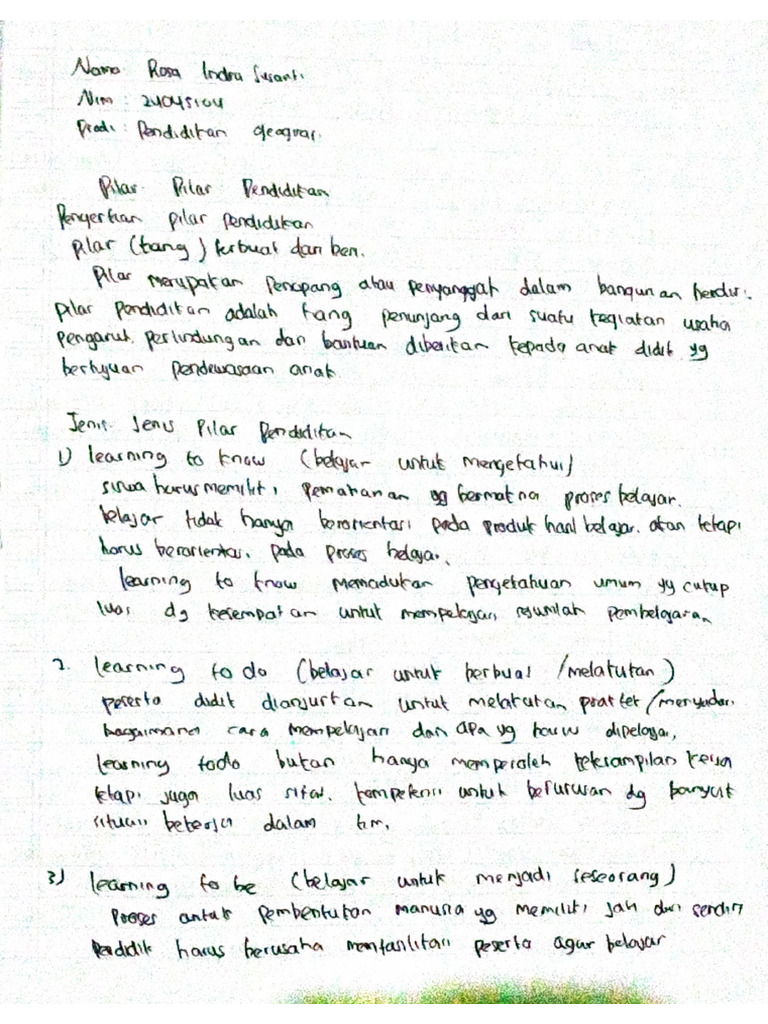 Nama : Rosa Indra Susanti
Nim : 24045104
Prodi : Pendidikan Geografi.
Pilar - Pilar Pendidikan
Pengertian pilar pendidikan
Pilar (tiang) terbuat dari besi.
Pilar merupakan penopang atau penyanggah dalam bangunan berdiri.
pilar pendidikan adalah tiang penunjang dari suatu kegiatan usaha
pengaruh, perlindungan dan bantuan diberikan kepada anak didik yg
bertujuan pendewasaan anak.
Jenis - Jenis Pilar Pendidikan
1) learning to know (belajar untuk mengetahui)
siswa harus memiliki pemahaman yg bermakna proses belajar.
belajar tidak hanya berorientasi pada produk hasil belajar. akan tetapi
harus berorientasi pada proses belajar.
learning to know memadukan pengetahuan umum yg cukup
luas dg kesempatan untuk mempelajari sejumlah pembelajaran
2. learning to do (belajar untuk berbuat /melakukan)
peserta didik dianjurkan untuk melakukan praktek / menyadari
bagaimana cara mempelajari dan apa yg harus dipelajari,
learning to do bukan hanya memperoleh keterampilan kerja
tetapi juga luas sifat. kompetensi untuk berurusan dg banyak
situasi bekerja dalam tim.
3) learning to be (belajar untuk menjadi seseorang)
Proses untuk pembentukan manusia yg memiliki jati diri sendiri
Pendidik harus berusaha memfasilitasi peserta agar belajar